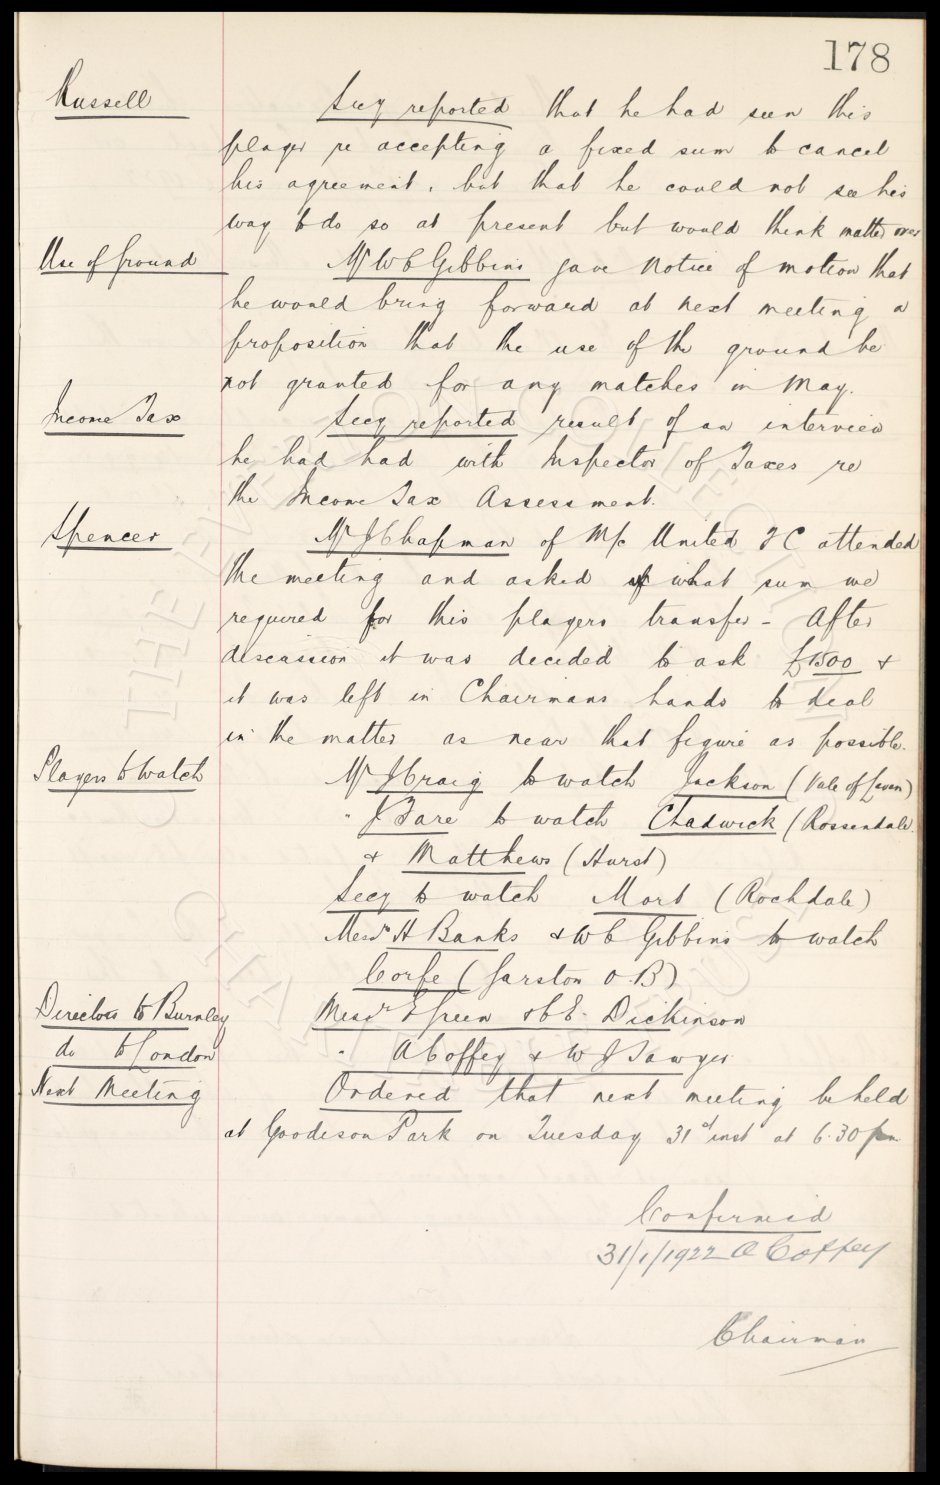 178
Russell Secy reported that he had seen this
player re accepting a fixed sum to cancel
his agreement, but that he could not see his
way to do so at present but would think matter over
Use of Ground Mr W C Gibbins gave notice of motion that
he would bring forward at next meeting a
proposition that the use of the ground be
not granted for any matches in May.
Income Tax Secy reported result of an interview
he had had with Inspector of Taxes re
the Income Tax Assessment.
Spencer Mr J Chapman of M/c United F C attended
the meeting and asked what sum we
required for this players transfer - After
discussion it was decided to ask £1500 &
it was left in Chairmans hands to deal
in the matter as near that figure as possible.
Players to Watch Mr J Craig to watch Jackson (Vale of Leven)
" J Fare to watch Chadwick (Rossendale)
& Matthews (Hurst)
Secy to watch Mort (Rochdale)
Messrs H Banks & W C Gibbins to watch
Corfe (Garston O.B)
Directors to Burnley Messrs E Green & C E. Dickinson
do to London " A Coffey & W J Sawyer
Next Meeting Ordered that next meeting be held
at Goodison Park on Tuesday 31st inst at 6.30 pm
Confirmed
31/1/1922 A Coffey
Chairman